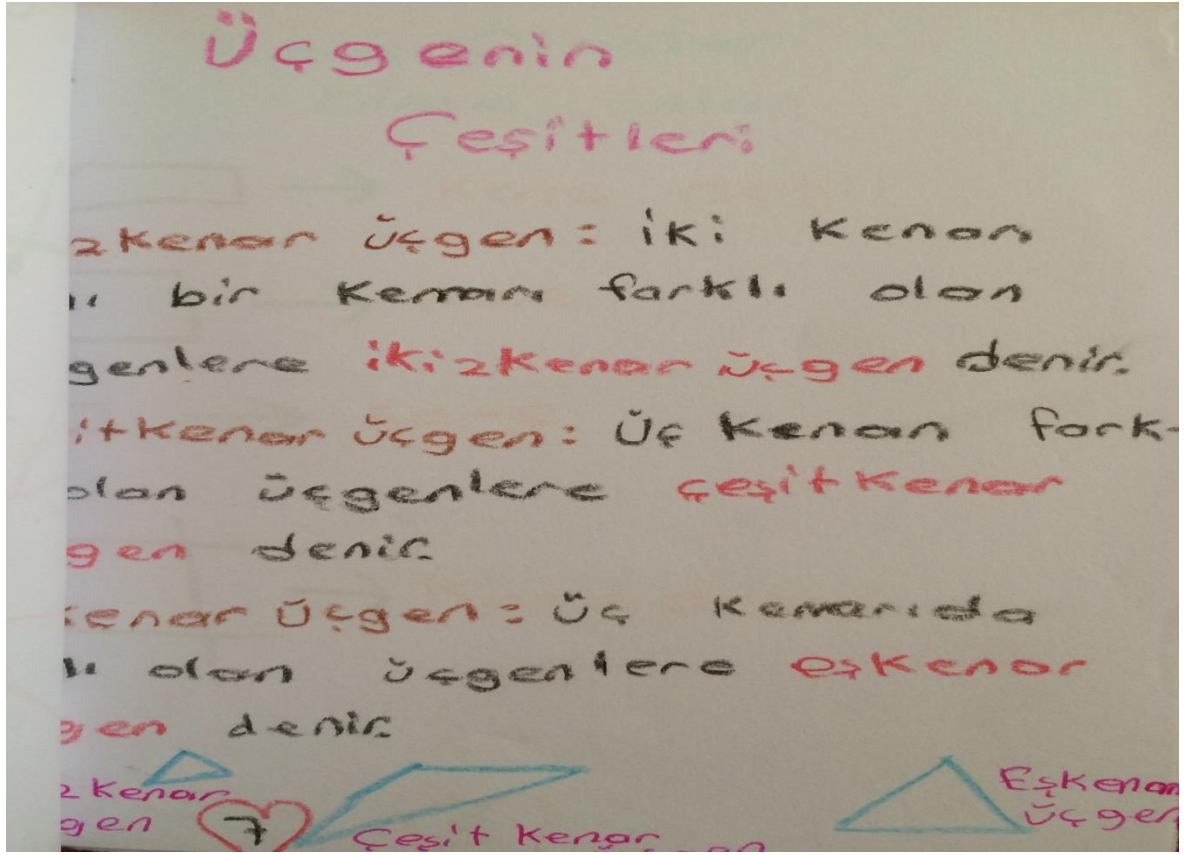 Üçgenin
Çeşitleri
zkenar üçgen: iki kenarı
lı bir kenarı farklı olan
genlere ikizkenar üçgen denir.
itkenar üçgen: Üç kenarı fark-
olan üçgenlere çeşitkenar
gen denir.
kenar üçgen: üç kenarıda
lı olan üçgenlere eşkenar
gen denir.
zkenar
gen
7
Çeşit kenar
gen
Eşkenar
üçgen